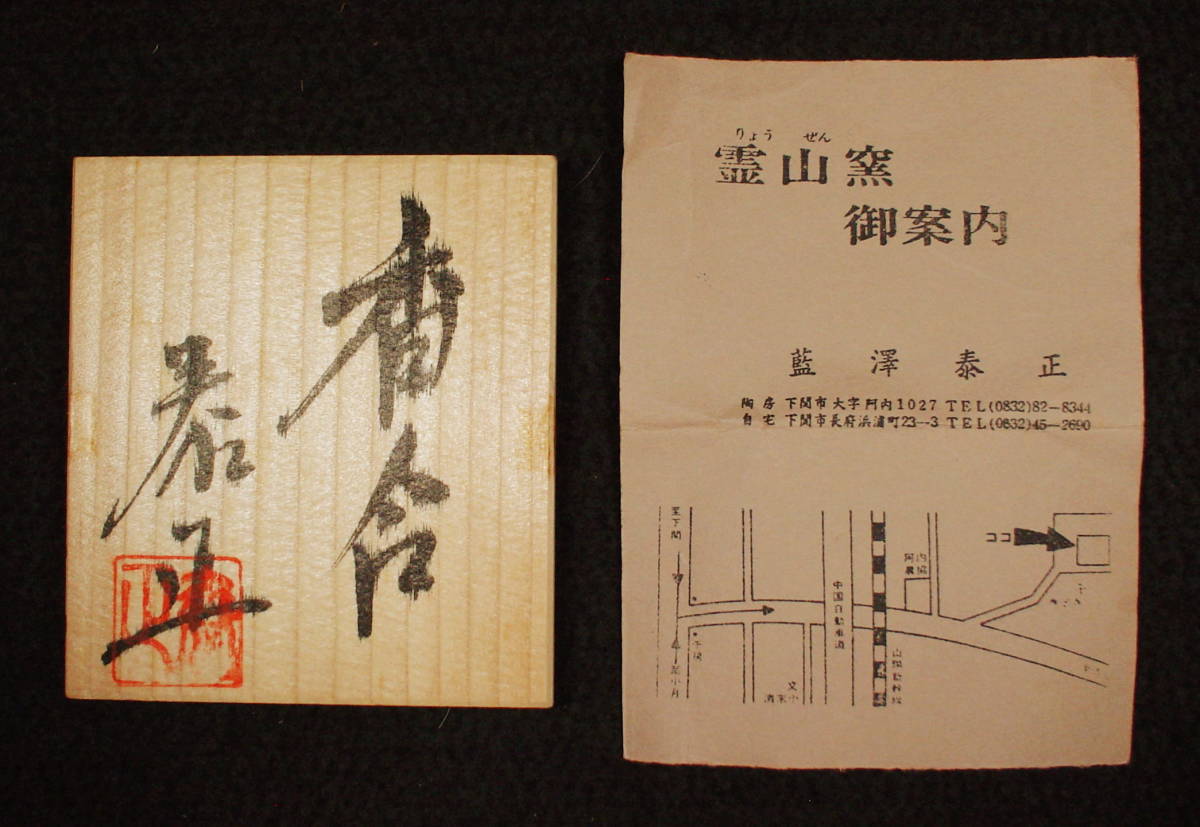 香合
泰正
りょう ぜん
霊山窯
御案内
藍澤泰正
陶房 下関市大字阿内1027 TEL(0832)82-8344
自宅 下関市長府浜浦町23-3 TEL(0832)45-2690
ココ
至下関
中国自動車道
山陽新幹線
至小月